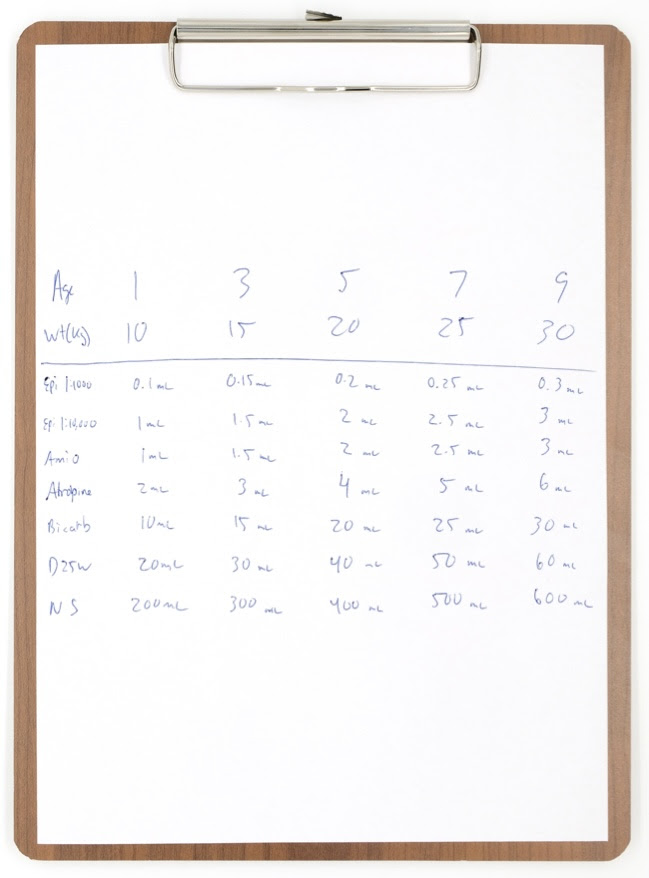 Age 1 3 5 7 9
Wt(kg) 10 15 20 25 30
Epi 1:1000 0.1mL 0.15mL 0.2 mL 0.25 mL 0.3 mL
Epi 1:10,000 1mL 1.5 mL 2 mL 2.5 mL 3 mL
Amio 1mL 1.5 mL 2 mL 2.5 mL 3 mL
Atropine 2mL 3 mL 4 mL 5 mL 6 mL
Bicarb 10mL 15 mL 20 mL 25 mL 30 mL
D25W 20mL 30 mL 40 mL 50 mL 60 mL
NS 200mL 300 mL 400 mL 500 mL 600 mL